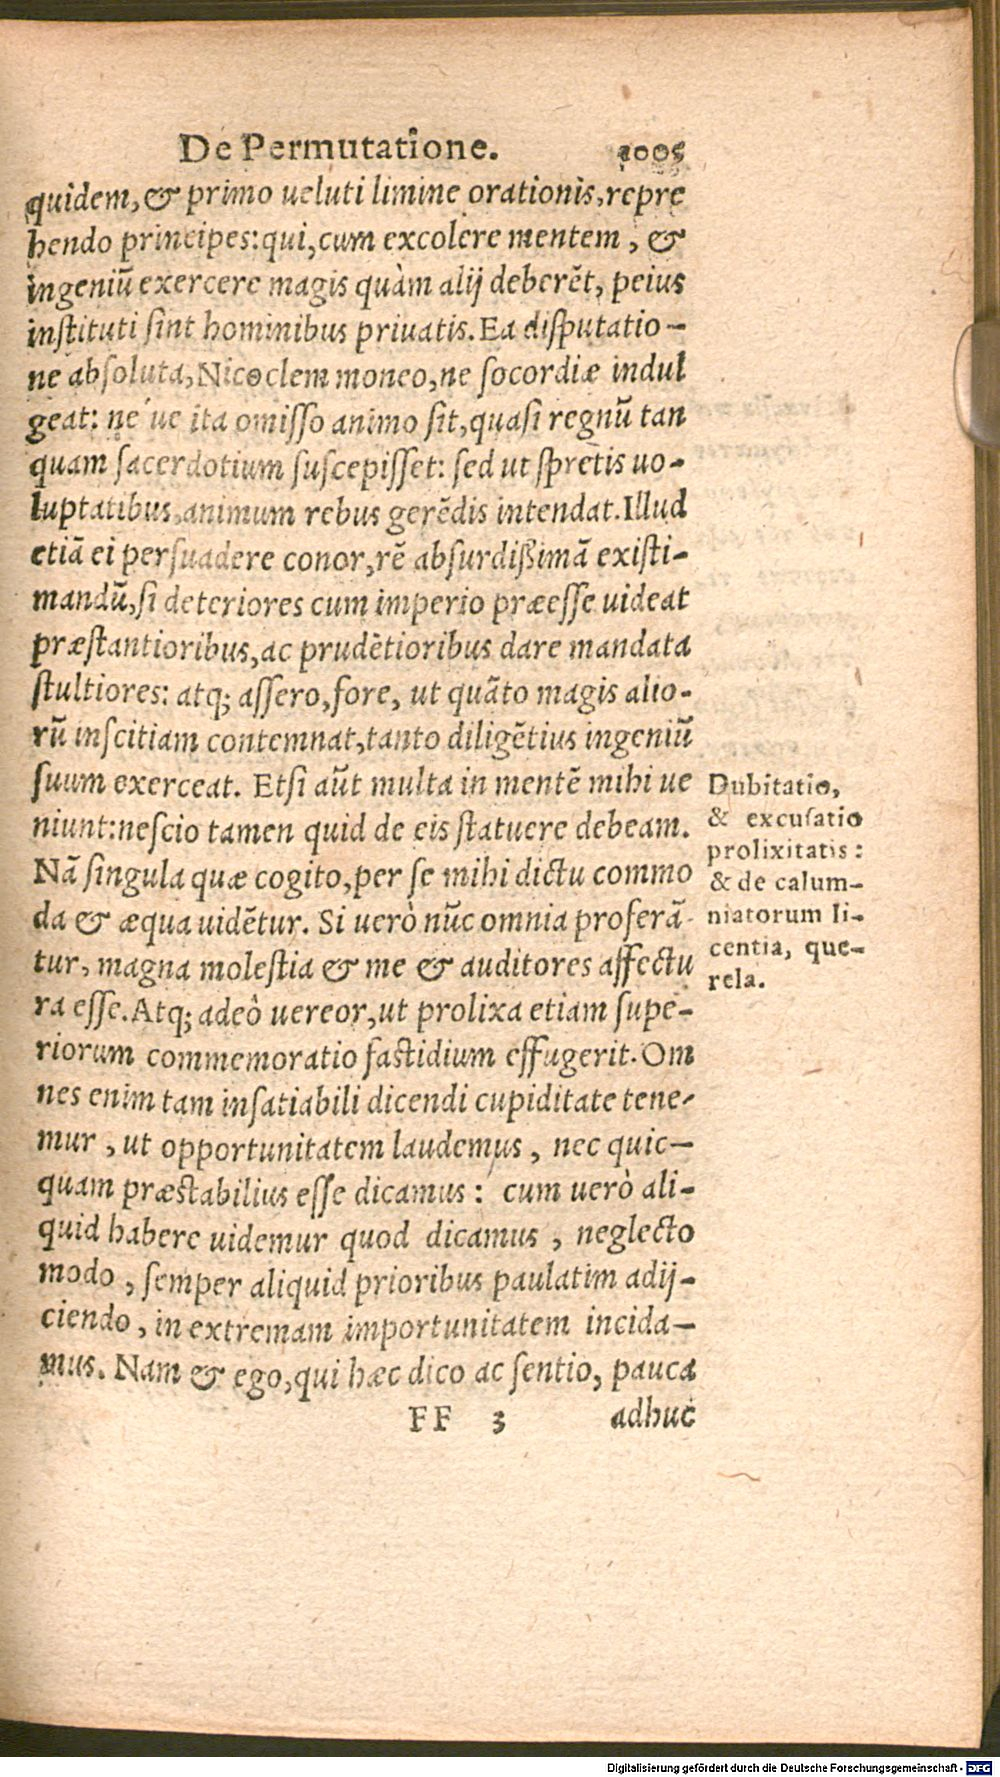 De Permutatione. 1005
quidem, & primo ueluti limine orationis, repre
hendo principes: qui, cum excolere mentem, &
ingeniũ exercere magis quàm alij deberẽt, peius
inſtituti ſint hominibus priuatis. Ea diſputatio-
ne abſoluta, Nicoclem moneo, ne ſocordiæ indul
geat: ne ue ita omiſſo animo ſit, quaſi regnũ tan
quam ſacerdotium ſuſcepiſſet: ſed ut ſpretis uo-
luptatibus, animum rebus gerẽdis intendat. Illud
etiã ei perſuadere conor, rẽ abſurdißimã exiſti-
mandũ, ſi deteriores cum imperio præeſſe uideat
præſtantioribus, ac prudẽtioribus dare mandata
ſtultiores: atq; aſſero, fore, ut quãto magis alio-
rũ inſcitiam contemnat, tanto diligẽtius ingeniũ
ſuum exerceat. Etſi aũt multa in mentẽ mihi ue
niunt: neſcio tamen quid de eis ſtatuere debeam.
Nã ſingula quæ cogito, per ſe mihi dictu commo
da & æqua uidẽtur. Si uerò nũc omnia proferã-
tur, magna moleſtia & me & auditores affectu
ra eſſe. Atq; adeò uereor, ut prolixa etiam ſupe-
riorum commemoratio faſtidium effugerit. Om
nes enim tam inſatiabili dicendi cupiditate tene-
mur, ut opportunitatem laudemus, nec quic-
quam præſtabilius eſſe dicamus: cum uerò ali-
quid habere uidemur quod dicamus, neglecto
modo, ſemper aliquid prioribus paulatim adij-
ciendo, in extremam importunitatem incida-
mus. Nam & ego, qui hæc dico ac ſentio, pauca
FF 3 adhuc
Dubitatio,
& excuſatio
prolixitatis:
& de calum-
niatorum li-
centia, que-
rela.
Digitalisierung gefördert durch die Deutsche Forschungsgemeinschaft - DFG